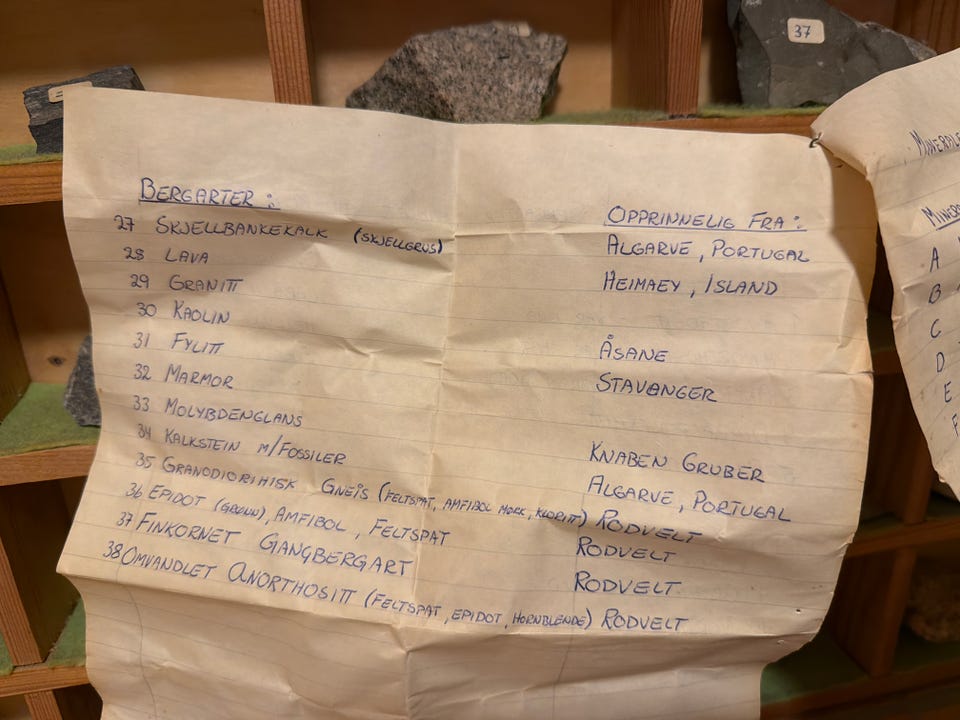 37
BERGARTER: OPPRINNELIG FRA:
27 SKJELLBANKEKALK (SKJELLGRUS) ALGARVE, PORTUGAL
28 LAVA HEIMAEY, ISLAND
29 GRANITT
30 KAOLIN ÅSANE
31 FYLITT STAVANGER
32 MARMOR
33 MOLYBDENGLANS KNABEN GRUBER
34 KALKSTEIN M/FOSSILER ALGARVE, PORTUGAL
35 GRANODIORITTISK GNEIS (FELTSPAT, AMFIBOL MØRK, KLORITT) RØDVELT
36 EPIDOT (GRØNN), AMFIBOL, FELTSPAT RØDVELT
37 FINKORNET GANGBERGART RØDVELT
38 OMVANDLET ANORTHOSITT (FELTSPAT, EPIDOT, HORNBLENDE) RØDVELT
A
B
C
D
E
F